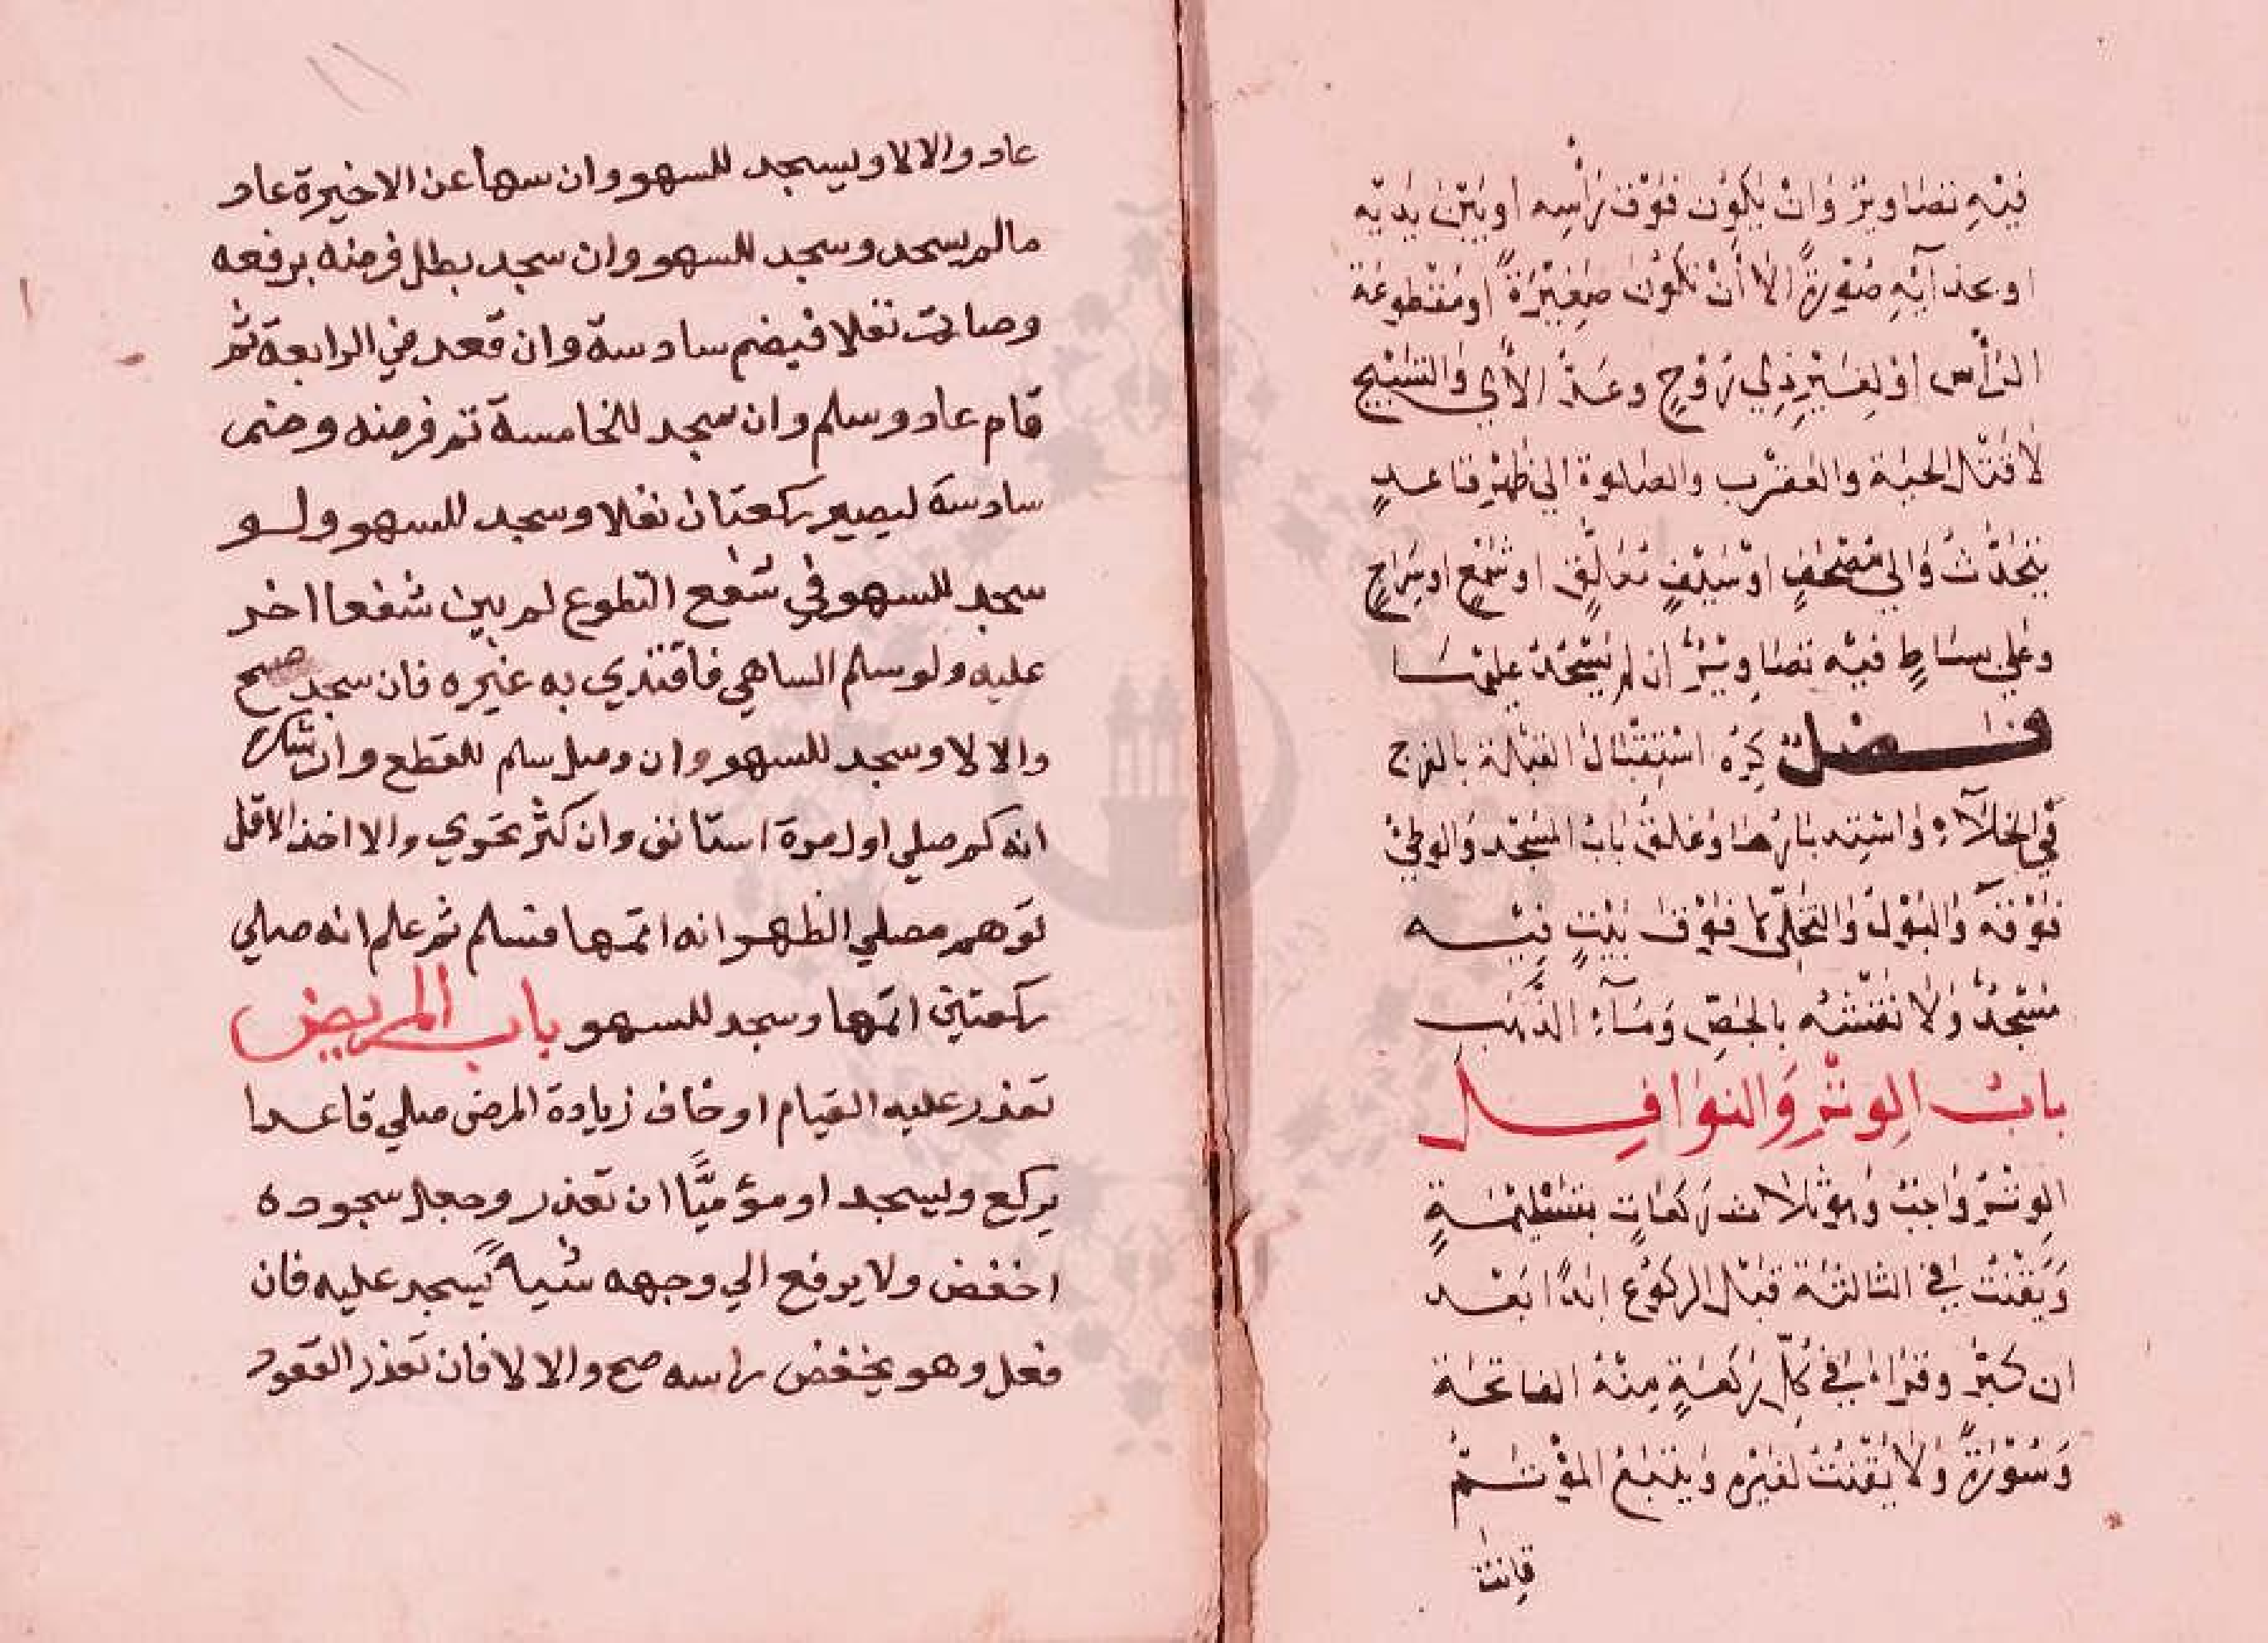 فيه تصاوير وان يكون فوق راسه او بين يديه
او بحذآيه صورة الا ان تكون صغيرة او مقطوعة
الرأس او لغير ذي روح وعد الآي والتسبيح
لا قتل الحية والعقرب والصلوة الى ظهر قاعد
يتحدث والي مصحف او سيف معلق او شمع او سراج
وعلي بساط فيه تصاوير ان لم يسجد عليها
فصل كره استقبال القبلة بالفرج
في الخلاء واستدبارها وغلق باب المسجد والوطئ
فوقه والبول والتخلي لا فوق بيت فيه
مسجد ولا نقشه بالجص وماء الذهب
باب الوتر والنوافل
الوتر واجب وهو ثلاث ركعات بتسليمة
ويقنت في الثالثة قبل الركوع ابدا بعد
ان كبر وقراء في كل ركعة منه الفاتحة
وسورة ولا يقنت لغيره ويتبع المؤتم
قانت
عاد والا لا ويسجد للسهو وان سها عن الاخيرة عاد
مالم يسجد وسجد للسهو وان سجد بطل فرضه برفعه
وصارت نفلا فيضم سادسة وان قعد في الرابعة ثم
قام عاد وسلم وان سجد للخامسة تم فرضه وضم
سادسة ليصير ركعتان نفلا وسجد للسهو ولو
سجد للسهو في شفع التطوع لم يبن شفعا اخر
عليه ولو سلم الساهي فاقتدي به غيره فان سجد صح
والا لا وسجد للسهو وان وصل سلم للقطع وان شك
انه كم صلي اول مرة استانف وان كثر تحوي والا اخذ الاقل
توهم مصلي الظهر انه اتمها فسلم ثم علم انه صلي
ركعتين اتمها وسجد للسهو باب المريض
تعذر عليه القيام او خاف زيادة المرض صلي قاعدا
يركع ويسجد او مؤميًّا ان تعذر وجعل سجوده
اخفض ولا يرفع الي وجهه شياً يسجد عليه فان
فعل وهو يخفض راسه صح والا لا فان تعذر القعود